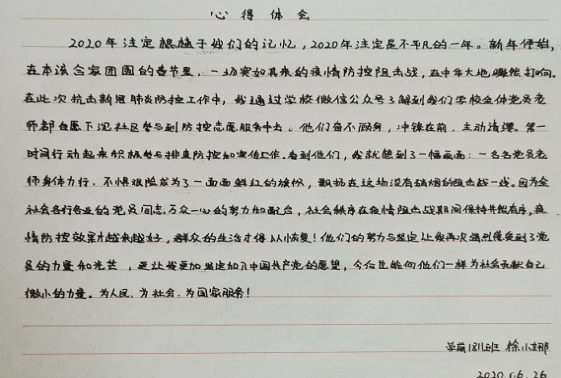 心得体会
2020年注定根植于我们的记忆，2020年注定是不平凡的一年。新年伊始，
在本该合家团圆的春节里，一场突如其来的疫情防控阻击战，在中华大地骤然打响。
在此次抗击新冠肺炎防控工作中，我通过学校微信公众号了解到我们学校全体党员老
师都自愿下沉社区参与到防控志愿服务中去。他们奋不顾身，冲锋在前，主动请缨。第一
时间行动起来积极参与排查防控和宣传工作。看到他们，我就想到了一幅画面：一名名党员老
师身体力行，不惧艰险成为了一面面鲜红的旗帜，飘扬在这场没有硝烟的阻击战一线。因为全
社会各行各业的党员同志万众一心的努力和配合，社会秩序在疫情阻击战期间保持井然有序，疫
情防控效果才越来越好，群众的生活才得以恢复！他们的努力与坚定让我再次强烈感受到了党
员的力量和光芒，更让我更加坚定加入中国共产党的愿望，今后也能向他们一样为社会贡献自己
微小的力量。为人民，为社会，为国家服务！
学前班 徐小娜
2020.06.26